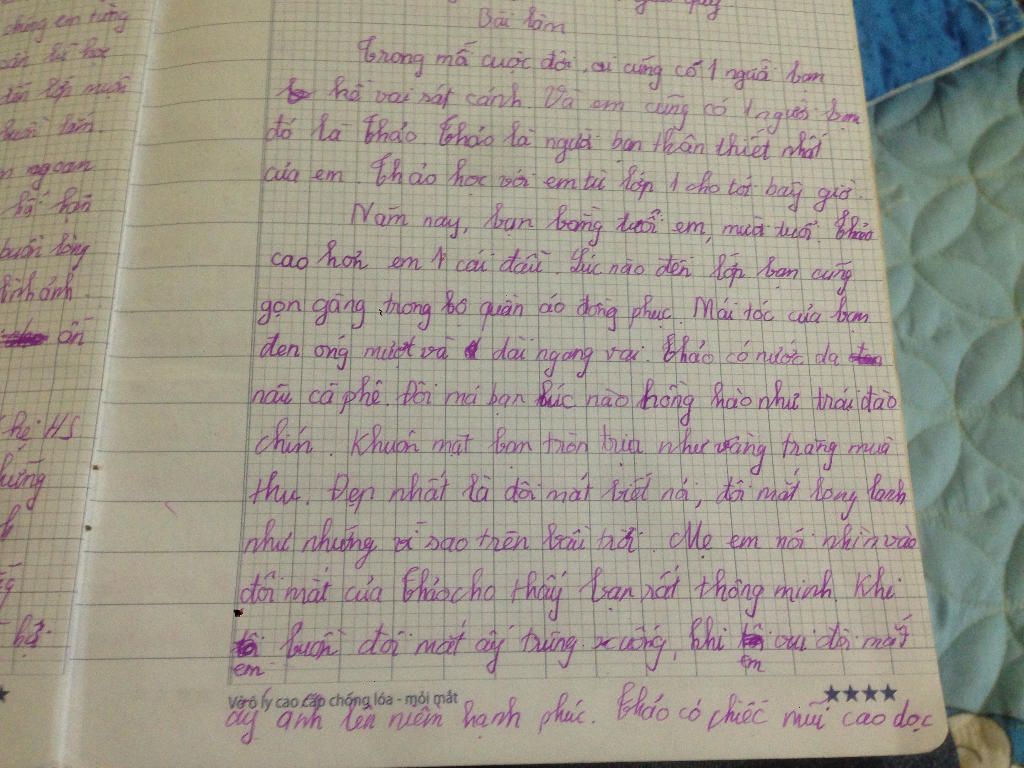 chúng em từng
Bài làm
Trong mỗi cuộc đời, ai cũng có 1 người bạn
kề vai sát cánh. Và em cũng có 1 người bạn
đó là Thảo. Thảo là người bạn thân thiết nhất
của em. Thảo học với em từ lớp 1 cho tới bây giờ.
Năm nay, bạn bằng tuổi em, mười tuổi. Thảo
cao hơn em 1 cái đầu. Lúc nào đến lớp bạn cũng
gọn gàng trong bộ quần áo đồng phục. Mái tóc của bạn
đen óng mượt và dài ngang vai. Thảo có nước da
nâu cà phê. Đôi má bạn lúc nào hồng hào như trái đào
chín. Khuôn mặt bạn tròn trịa như vầng trăng mùa
thu. Đẹp nhất là đôi mắt biết nói, đôi mắt long lanh
như những vì sao trên bầu trời. Mẹ em nói nhìn vào
đôi mắt của Thảo cho thấy bạn rất thông minh. Khi
em buồn đôi mắt ấy trũng xuống, khi em vui đôi mắt
Vở ô ly cao cấp chống lóa - mỏi mắt
ấy ánh lên niềm hạnh phúc. Thảo có chiếc mũi cao dọc